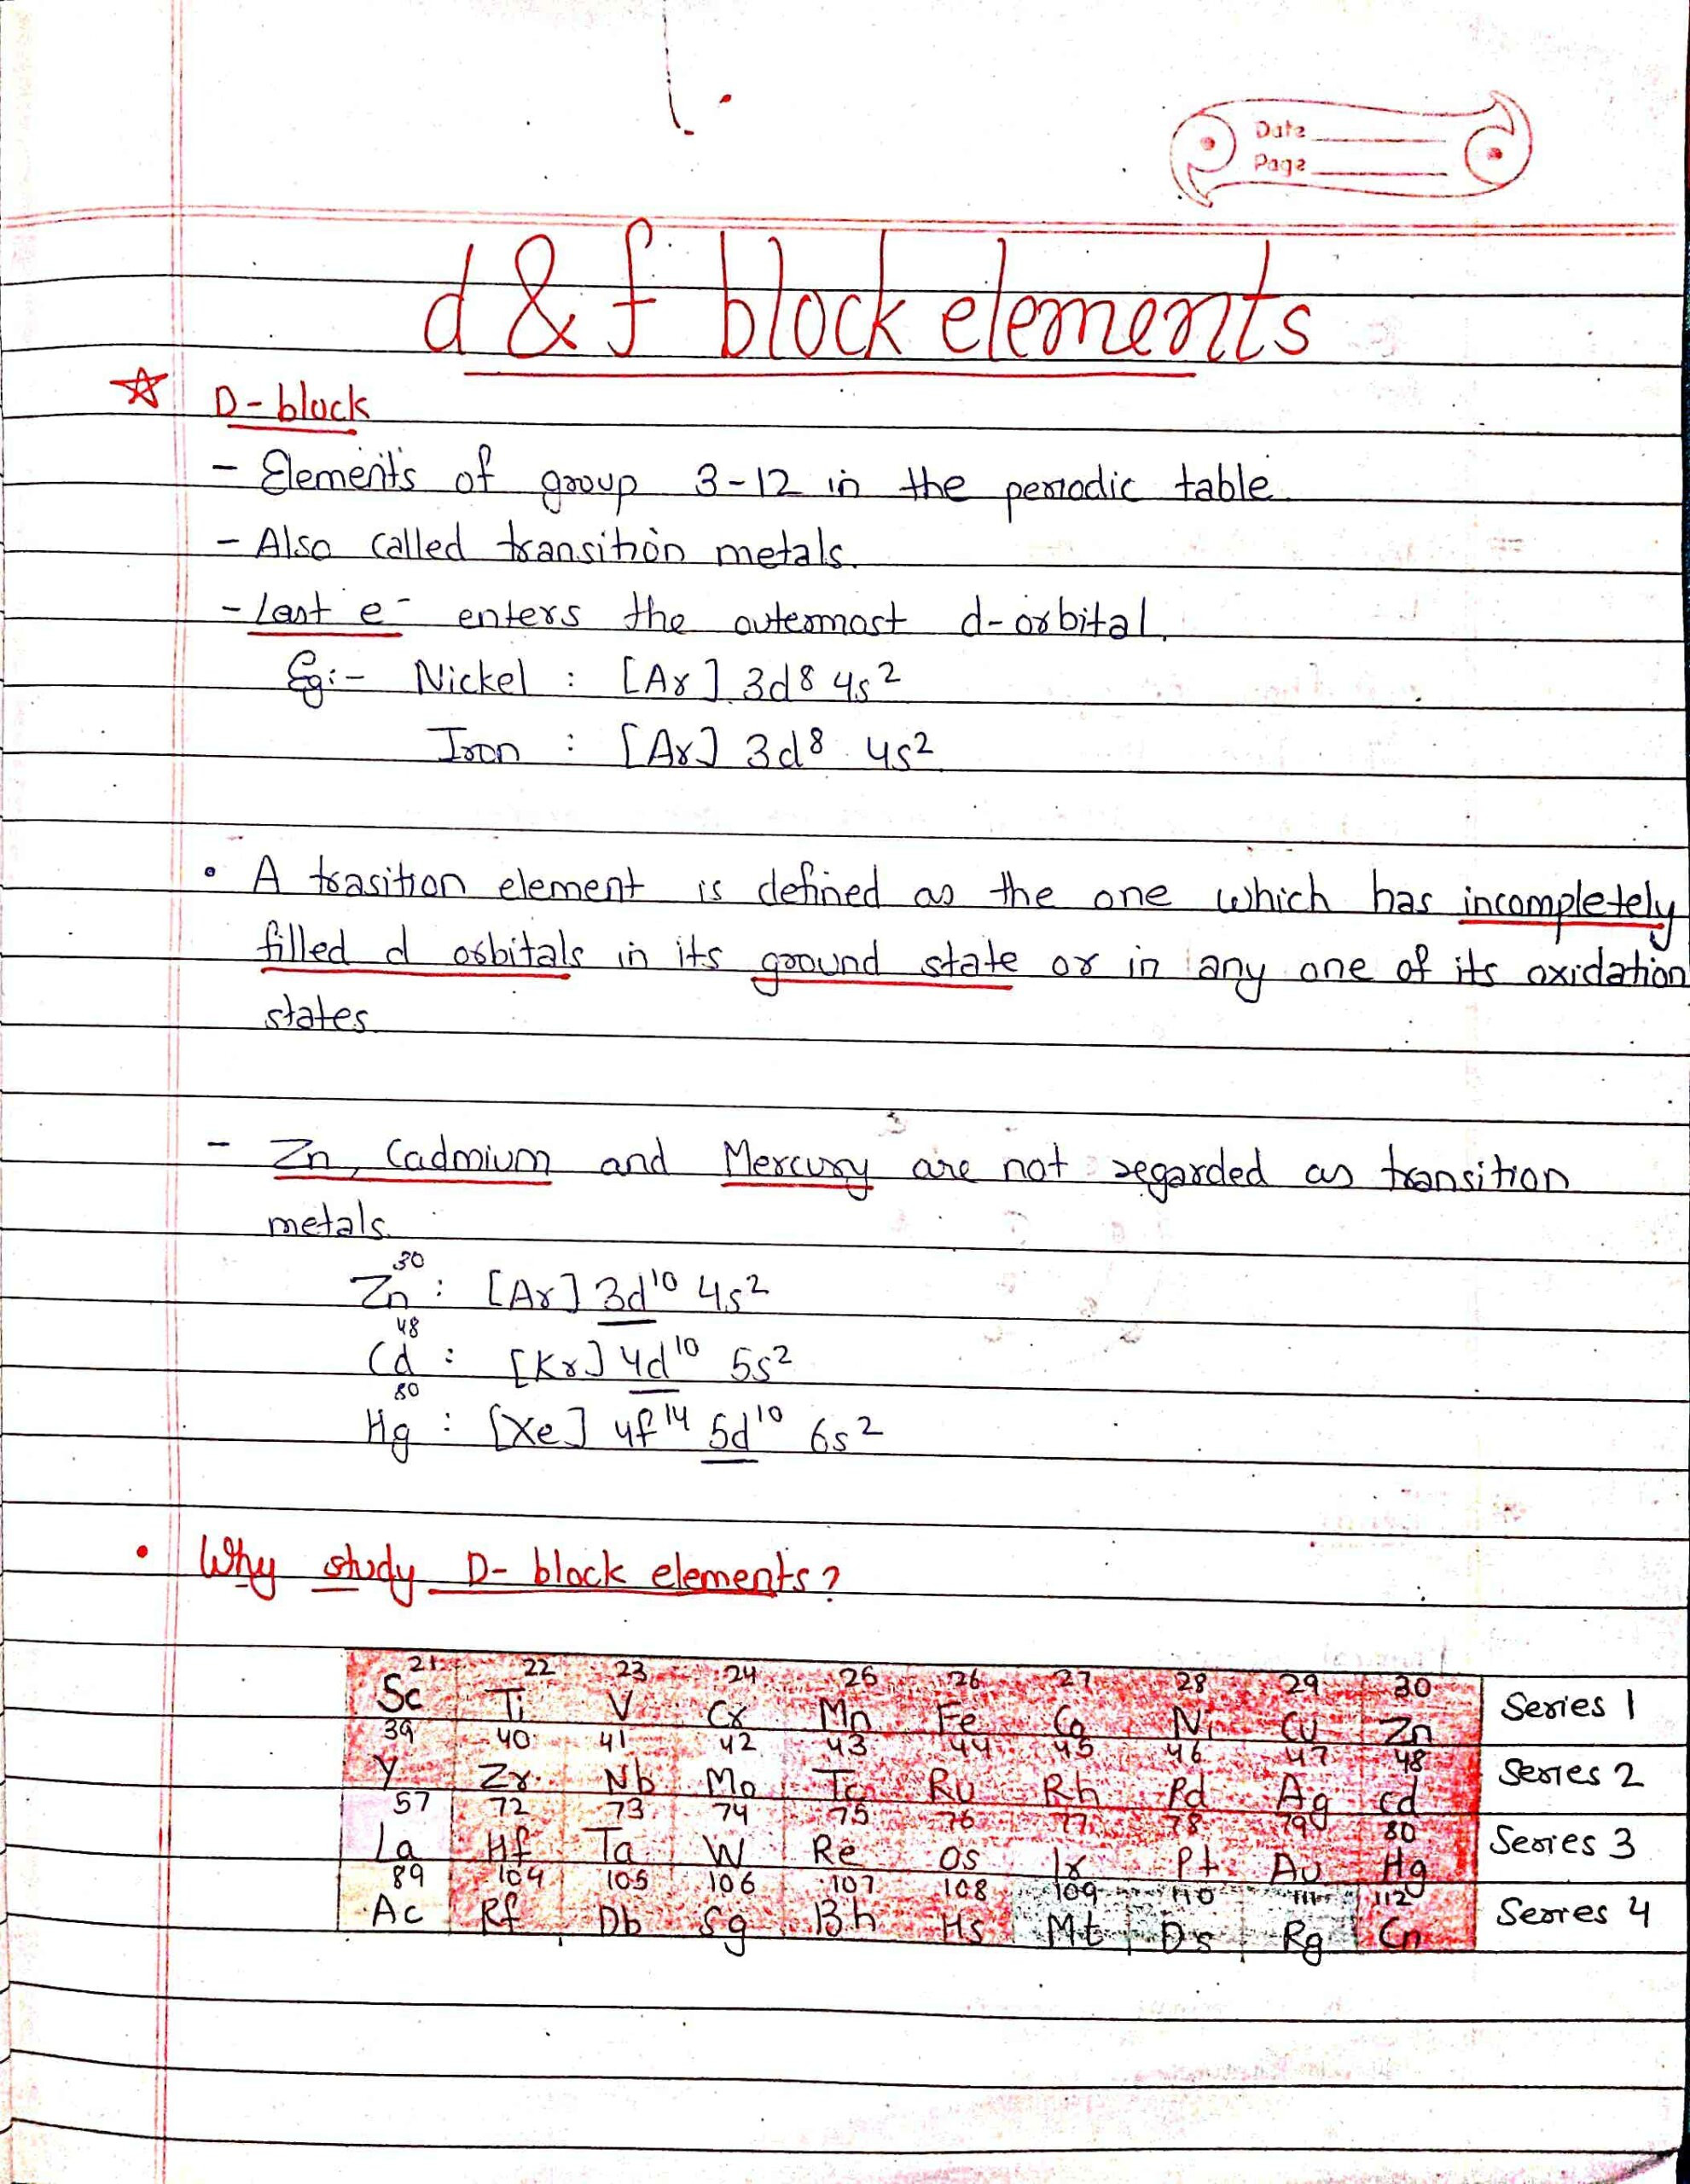 Date
Page
d & f block elements
☆ D-block
- Elements of group 3-12 in the periodic table.
- Also called transition metals.
- Last e⁻ enters the outermost d-orbital.
Eg:- Nickel : [Ar] 3d8 4s²
Iron : [Ar] 3d⁸ 4s²
• A trasition element is defined as the one which has incompletely
filled d orbitals in its ground state or in any one of its oxidation
states.
- Zn, Cadmium and Mercury are not regarded as transition
metals.
Zn³⁰ : [Ar] 3d¹⁰ 4s²
Cd⁴⁸ : [Kr] 4d¹⁰ 5s²
Hg⁸⁰ : [Xe] 4f¹⁴ 5d¹⁰ 6s²
• Why study D-block elements?
21 22 23 24 25 26 27 28 29 30
Sc Ti V Cr Mn Fe Co Ni Cu Zn Series 1
39 40 41 42 43 44 45 46 47 48
Y Zr Nb Mo Tc Ru Rh Pd Ag Cd Series 2
57 72 73 74 75 76 77 78 79 80
La Hf Ta W Re Os Ir Pt Au Hg Series 3
89 104 105 106 107 108 109 110 111 112
Ac Rf Db Sg Bh Hs Mt Ds Rg Cn Series 4